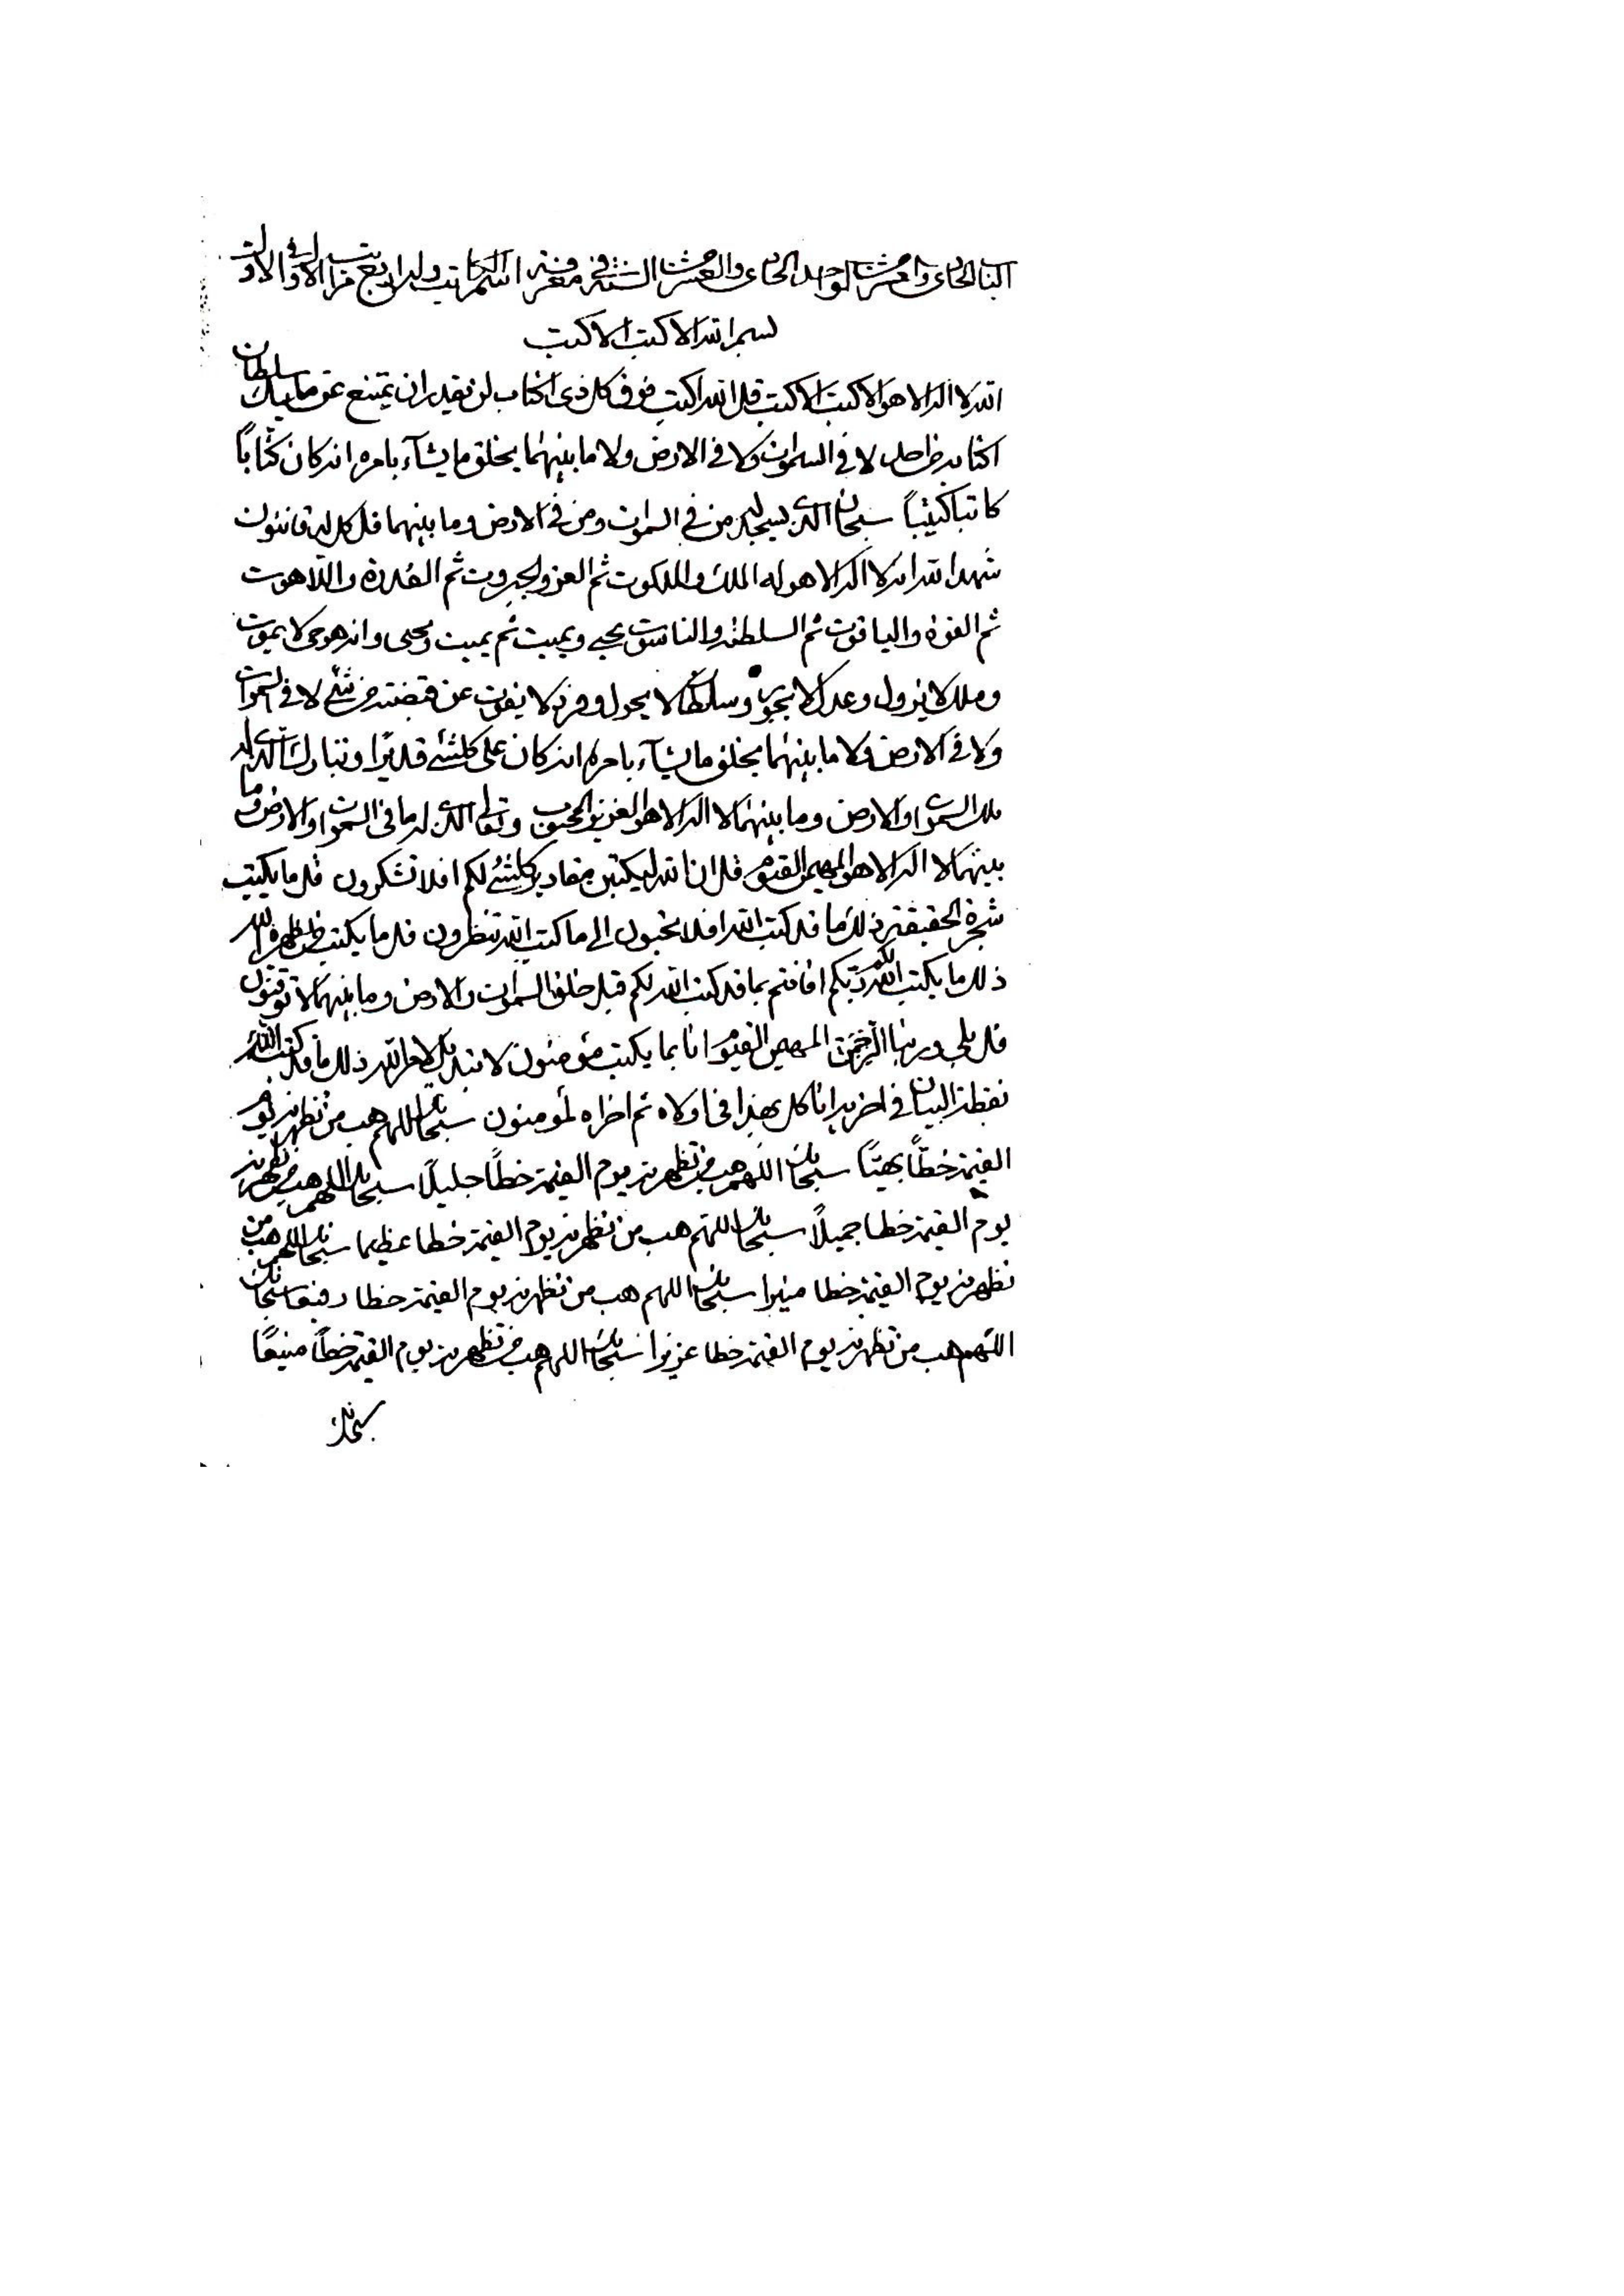 الباب الحادی والعشر من الواحد الحادی والعشر من السنة فی معرفة اسم الکاتب وله اربع مراتب الاول فی الاول
بسم الله الاکتب الاکتب
الله لا اله الا هو الاکتب الاکتب قل الله اکتب فوق کل ذی اکتاب لن یقدر ان یمتنع عن ملیک سلطان
اکتابه من احد لا فی السموات ولا فی الارض ولا ما بینهما یخلق ما یشآء بامره انه کان کتاباً
کاتبا کتیباً سبحان الذی یسجد له من فی السموات ومن فی الارض وما بینهما قل کل له قانتون
شهد الله انه لا اله الا هو له الملک والملکوت ثم العز والجبروت ثم القدرة واللاهوت
ثم القوة والیاقوت ثم السلطنة والناسوت یحیی ویمیت ثم یمیت ویحیی وانه هو حی لا یموت
وملک لا یزول وعدل لا یجور وسلطان لا یحول وفرد لا یفوت عن قبضته من شئ لا فی السموات
ولا فی الارض ولا ما بینهما یخلق ما یشآء بامره انه کان علی کلشئ قدیرا وتبارک الذی له
ملک السموات والارض وما بینهما لا اله الا هو العزیز المحبوب وتعالی الذی له ما فی السموات والارض وما
بینهما لا اله الا هو المهیمن القیوم قل ان الله لیکتبن مقادیر کلشئ لکم افلا تشکرون قل ما یکتب
شجرة الحقیقة ذلک ما قد کتب الله افلا تحبون الی ما کتب الله تنظرون قل ما یکتب من یظهره الله
ذلک ما یکتب الله ربکم افانتم بما قد کتب الله لکم قبل خلق السموات والارض وما بینهما لا توقنون
قل بلی وربنا الرحمن المهیمن القیوم انا بما یکتب مؤمنون لا تبدیل لامر الله ذلک ما قد کتب الله
نقطة البیان فی اخریه انا کل بهذا فی اولاه ثم اخراه لمؤمنون سبحانک اللهم هب من تظهرنه یوم
القیمة خطاً بهیّاً سبحانک اللهم هب من تظهرنه یوم القیمة خطاً جلیلاً سبحانک اللهم هب من تظهرنه
یوم القیمة خطا جمیلاً سبحانک اللهم هب من تظهرنه یوم القیمة خطا عظیما سبحانک اللهم هب من
تظهرنه یوم القیمة خطا منیرا سبحانک اللهم هب من تظهرنه یوم القیمة خطا رفیعا سبحانک
اللهم هب من تظهرنه یوم القیمة خطا عزیزا سبحانک اللهم هب من تظهرنه یوم القیمة خطاً منیعًا
سبحانک